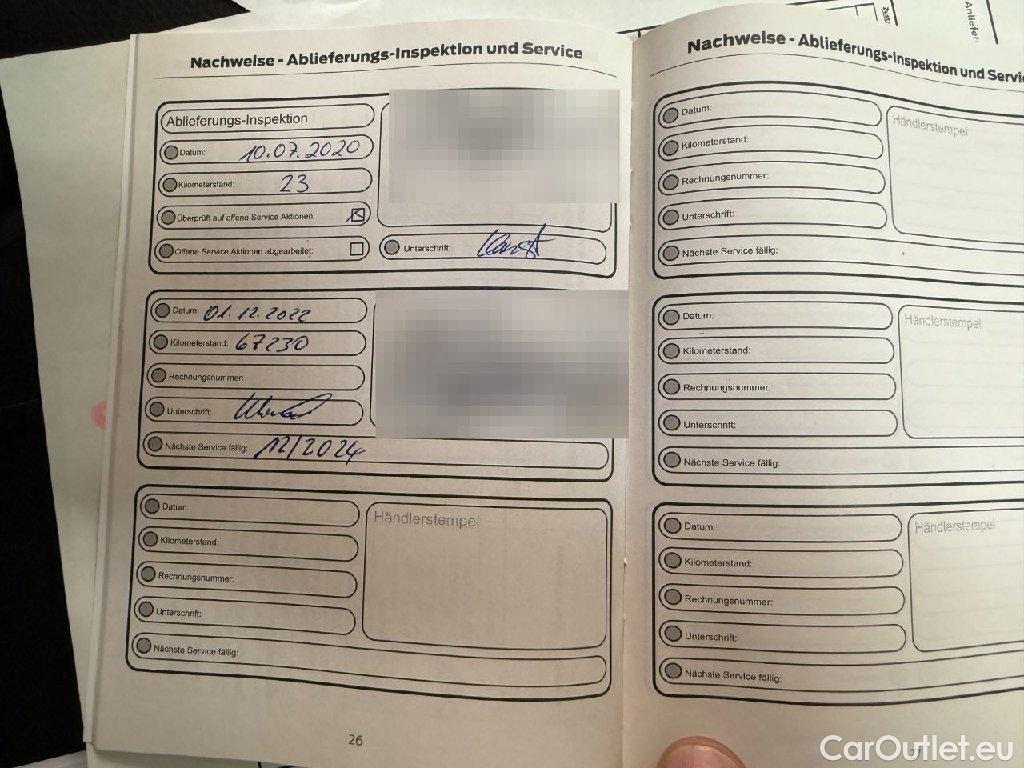 Zust
Anliefer
Nachweise - Ablieferungs-Inspektion und Service
Ablieferungs-Inspektion
Datum: 10.07.2020
Kilometerstand: 23
Überprüft auf offene Service Aktionen
Offene Service Aktionen abgearbeitet:
Unterschrift:
Datum: 01.12.2022
Kilometerstand: 67230
Rechnungsnummer:
Unterschrift:
Nächste Service fällig: 12/2024
Datum:
Kilometerstand:
Rechnungsnummer:
Unterschrift:
Nächste Service fällig:
Händlerstempel
26
Nachweise - Ablieferungs-Inspektion und Servi
Datum:
Kilometerstand:
Rechnungsnummer:
Unterschrift:
Nächste Service fällig:
Händlerstempel
Datum:
Kilometerstand:
Rechnungsnummer:
Unterschrift:
Nächste Service fällig:
Händlerstempel
Datum:
Kilometerstand:
Rechnungsnummer:
Unterschrift:
Nächste Service fällig:
Händlerstempel
CarOutlet.eu